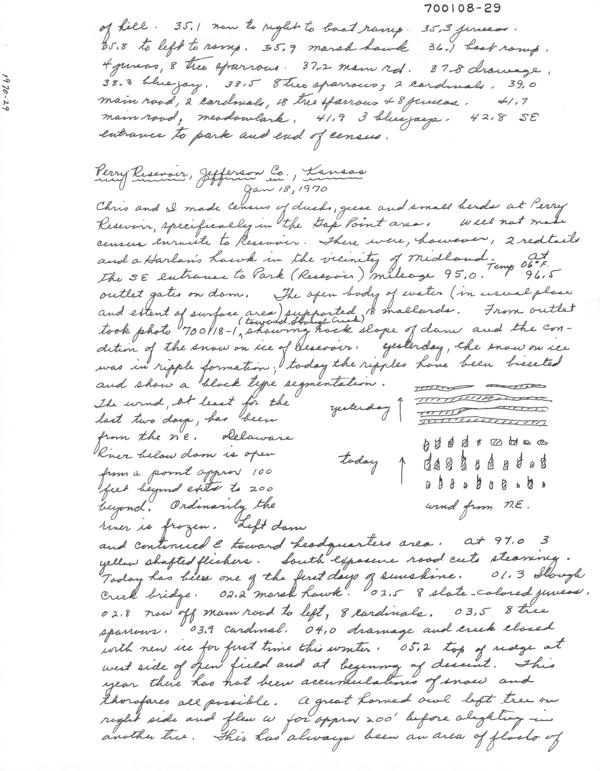 700108-29
1970-29
of hill. 35.1 now to right to boat ramp. 35.3 juncos.
35.8 to left to ramp. 35.9 marsh hawk 36.1 boat ramp.
4 juncos, 8 tree sparrows. 37.2 main rd. 37.8 drainage,
38.3 bluejay. 38.5 8 tree sparrows, 2 cardinals. 39.0
main road, 2 cardinals, 18 tree sparrows & 8 juncos. 41.7
main road, meadowlark. 41.9 3 bluejays. 42.8 SE
entrance to park and end of census.
Perry Reservoir, Jefferson Co., Kansas
Jan 18, 1970
Chris and I made census of ducks, geese and small birds at Perry
Resevoir, specifically in the Gap Point area. Will not make
census enroute to Resevoir. There were, however, 2 redtails
and a Harlan's hawk in the vicinity of Midland. At
the SE entrance to Park (Resevoir) mileage 95.0. Temp 06° F. 96.5
outlet gates on dam. The open body of water (in usual place
and extent of surface area) supported 18 mallards. From outlet
took photo 700118-1, (toward Slough Creek) showing rock slope of dam and the con-
dition of the snow on ice of resevoir. Yesterday, the snow on ice
was in ripple formation; today the ripples have been bisected
and show a block type segmentation.
The wind, at least for the
last two days, has been
from the NE. Delaware
River below dam is open
from a point approx 100
feet beyond exits to 200
beyond. Ordinarily the
river is frozen. Left dam
yesterday
today
wind from N.E.
and continued E toward headquarters area. At 97.0 3
yellow shafted flickers. South exposure road cuts steaming.
Today has been one of the first days of sunshine. 01.3 Slough
Creek bridge. 02.2 marsh hawk. 02.5 8 slate-colored juncos.
02.8 now off main road to left, 8 cardinals. 03.5 8 tree
sparrows. 03.9 cardinal. 04.0 drainage and creek closed
with new ice for first time this winter. 05.2 top of ridge at
west side of open field and at beginning of descent. This
year there has not been accumulations of snow and
thorofares all possible. A great horned owl left tree on
right side and flew W for approx 200' before alighting in
another tree. This has always been an area of flocks of